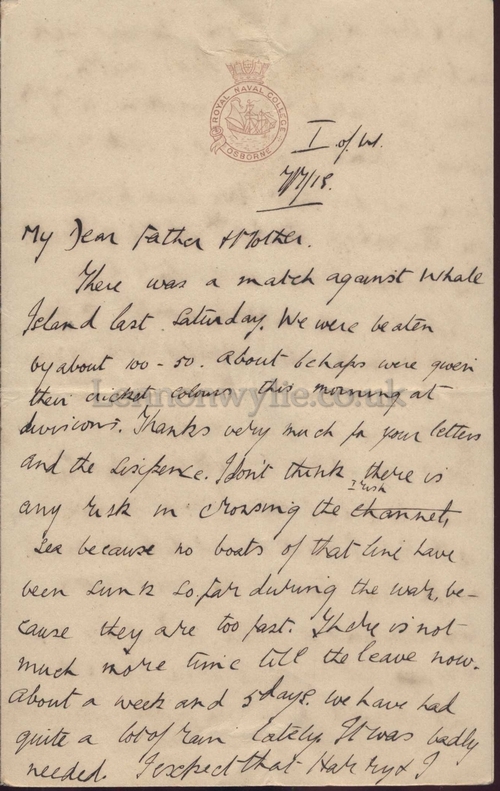 ROYAL NAVAL COLLEGE
OSBORNE
I of W.
7/7/18.
My Dear Father & Mother.
There was a match against Whale
Island last Saturday. We were beaten
by about 100-50. About 6 chaps were given
their cricket colours this morning at
divisions. Thanks very much for your letters
and the sixpence. I don't think there is
any risk in crossing the channel, Irish
Sea because no boats of that line have
been sunk so far during the war, be-
cause they are too fast. There is not
much more time till the leave now.
About a week and 5 days. We have had
quite a lot of rain lately. It was badly
needed. I expect that Harry & I
Lennonwylie.co.uk